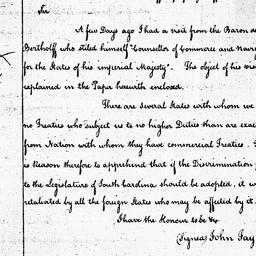 Sir
A few Days ago I had a visit from the Baron de
Bertholff who stiled himself "Counsellor of Commerce and Navig
for the States of his imperial Majesty". The object of his visi
explained in the Paper herewith enclosed.
There are several States with whom we
no Treaties who subject us to no higher Duties than are exac
from Nation with whom they have commercial Treaties.
is Reason therefore to apprehend that if the Discrimination
to the Legislature of South Carolina should be adopted, it w
retaliated by all the foreign States who may be affected by it.
I have the Honour to be &c
(Signed) John Jay